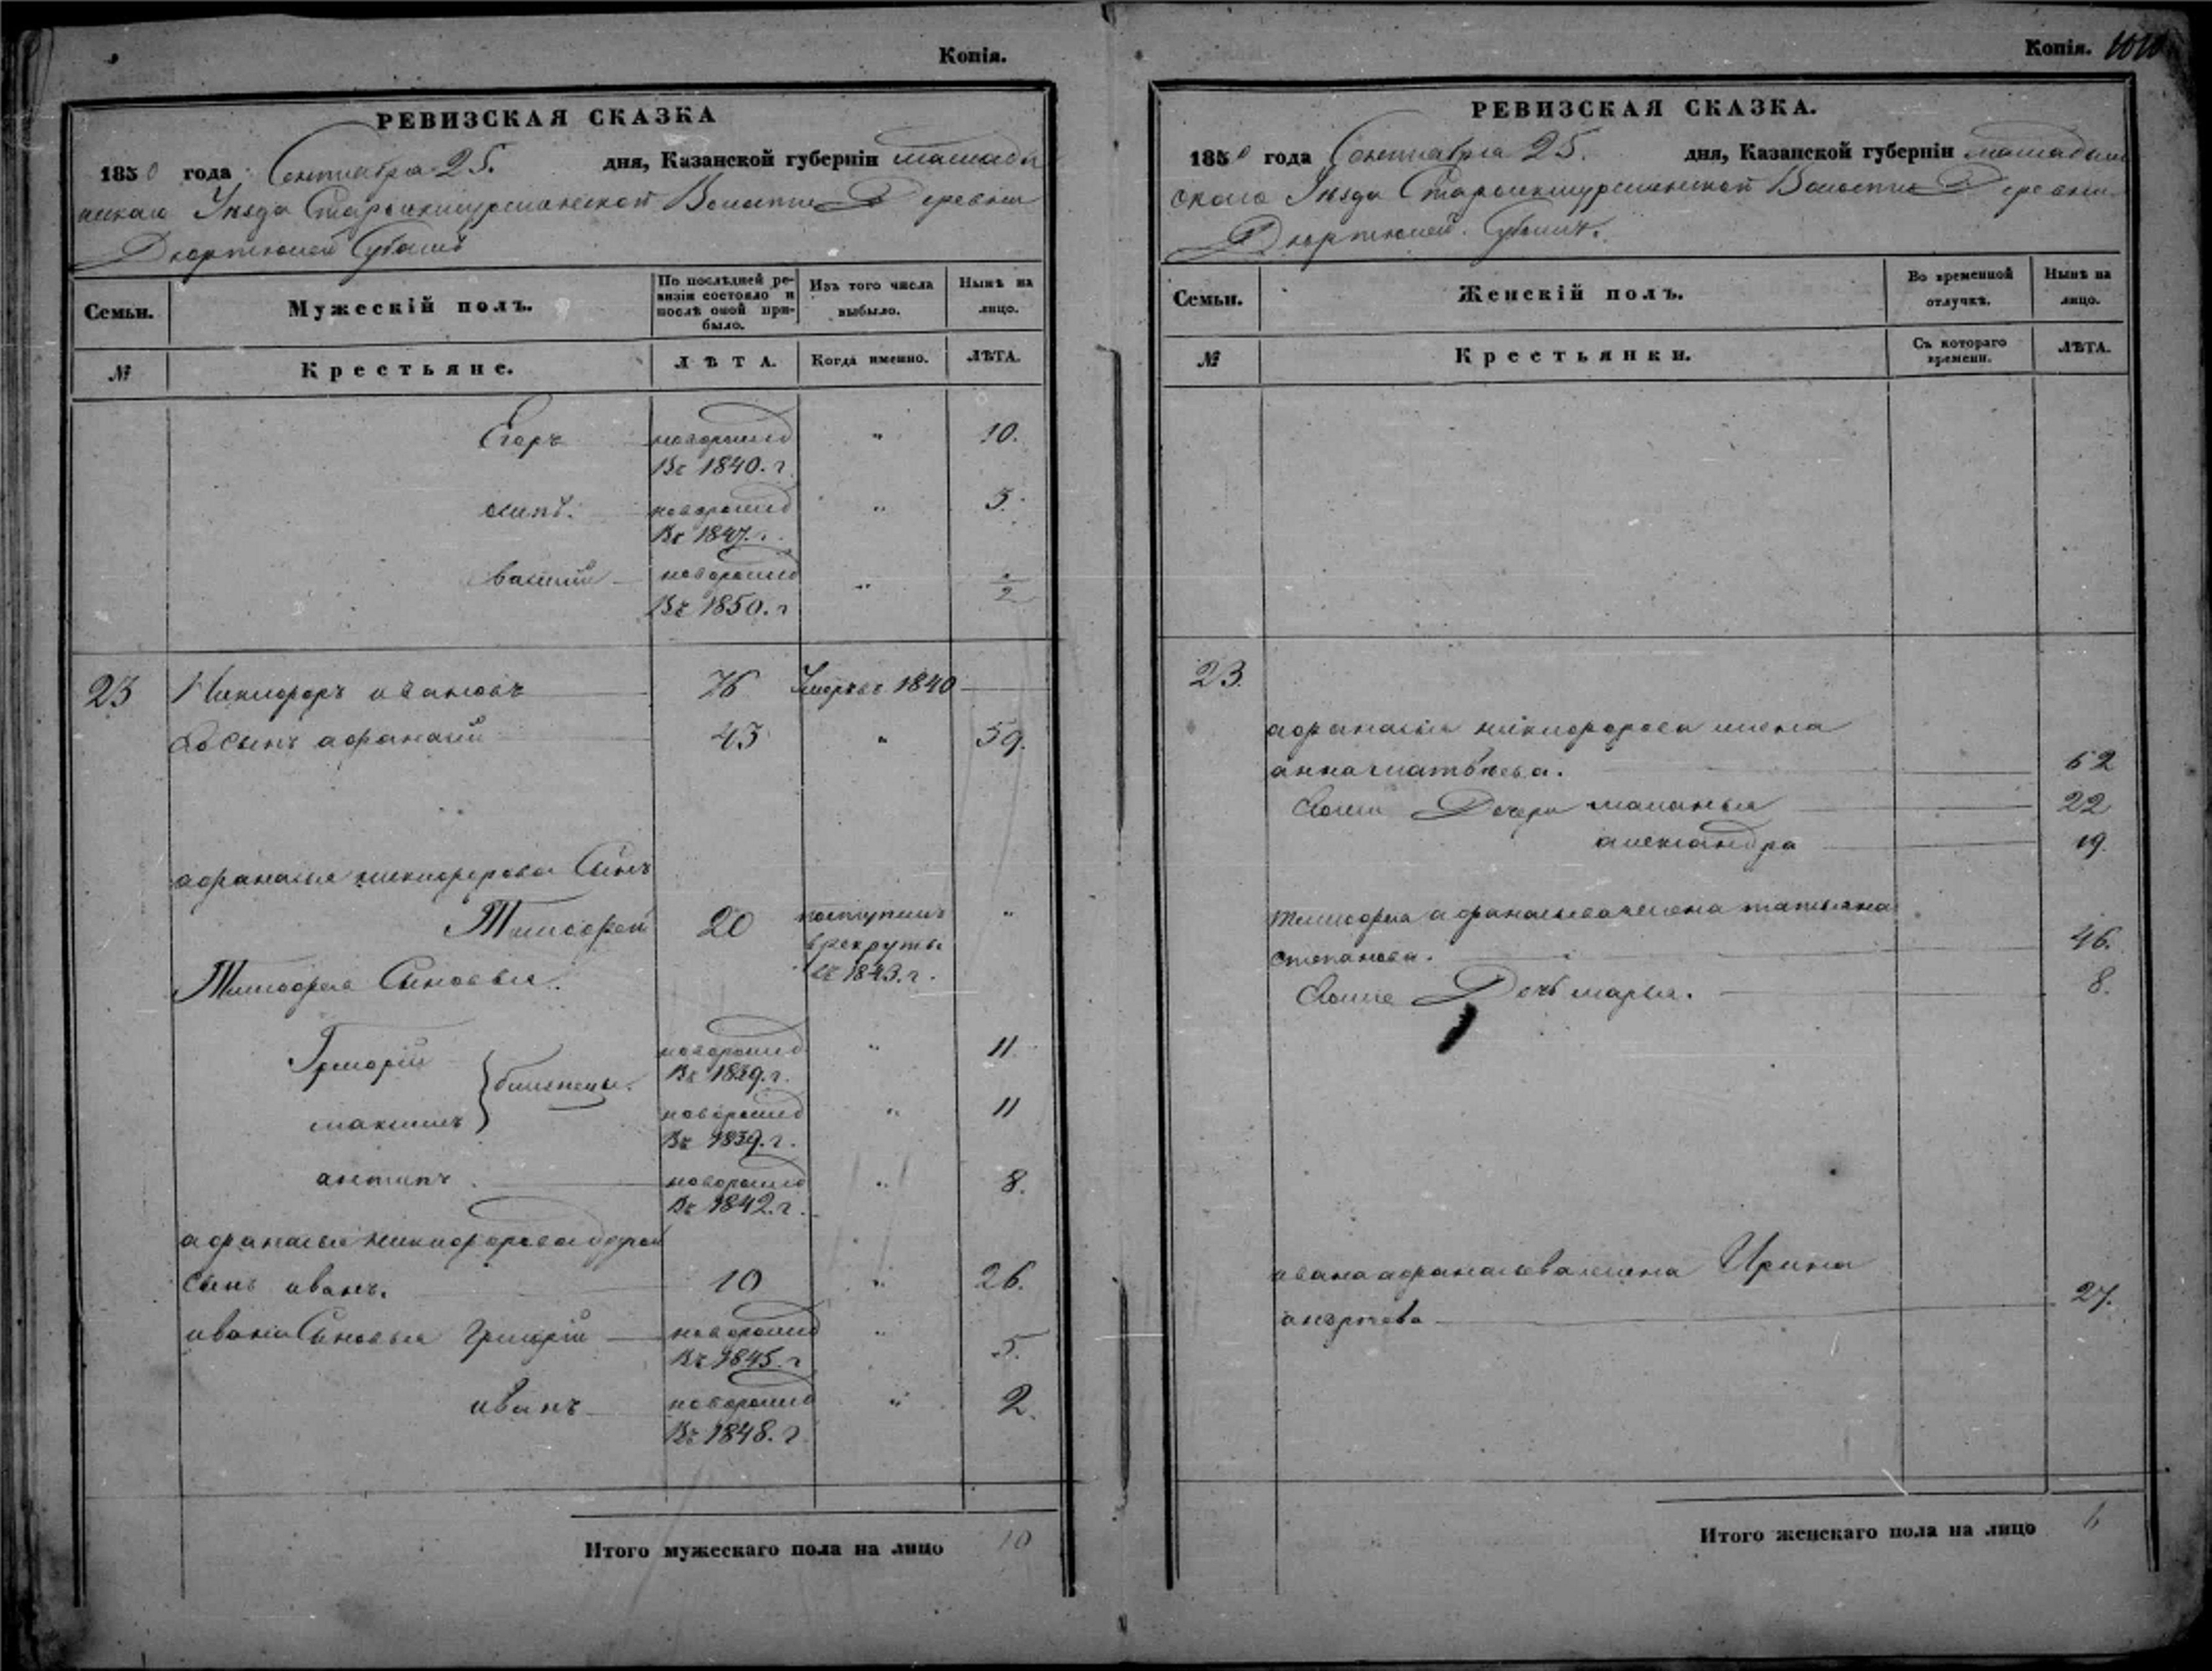 Копія.
РЕВИЗСКАЯ СКАЗКА
1850 года Сентября 25. дня, Казанской губерніи мамады
шскаго Уезда Волости Деревни
Дюртюлей
Семьи. Мужескій полъ. По послѣдней ревизіи состояло и послѣ оной прибыло. Изъ того числа выбыло. Нынѣ на лицо.
№ Крестьяне. ЛѢТА. Когда именно. ЛѢТА.
Егоръ новорожд „ 10.
Въ 1840. г
осипъ. новорожд „ 3.
Въ 1847. г.
василій новорожд „ 1/2
Въ 1850. г
23 Никифоръ ивановъ 76 Умеръ въ 1840
Его сынъ афанасій 43 „ 59.
афанасья никифорова Сынъ
Тимофей 20 поступилъ „
в рекруты
въ 1843. г.
Тимофея Сыновья.
Григорій новорожд „ 11.
близнецы. Въ 1839. г.
максимъ новорожд „ 11
Въ 1839. г.
антипъ новорожд „ 8.
Въ 1842. г.
афанасья никифорова другой
сынъ иванъ. 10 „ 26.
ивана Сыновья Григорій новорожд „ 5.
Въ 1845. г
иванъ новорожд „ 2.
Въ 1848. г
Итого мужескаго пола на лицо 10
Копія.
РЕВИЗСКАЯ СКАЗКА.
1850 года Сентября 25. дня, Казанской губерніи мамадыш
скаго Уезда Волости Деревни
Дюртюлей
Семьи. Женскій полъ. Во временной отлучкѣ. Нынѣ на лицо.
№ Крестьянки. Съ котораго времени. ЛѢТА.
23.
афанасья никифорова жена
анна матвѣева. 62
Дочери маланья 22
александра 19.
тимофея афанасьева жена татьяна
степанова. 46.
Дочь марья. 8.
ивана афанасьева жена Ирина
27.
Итого женскаго пола на лицо 6